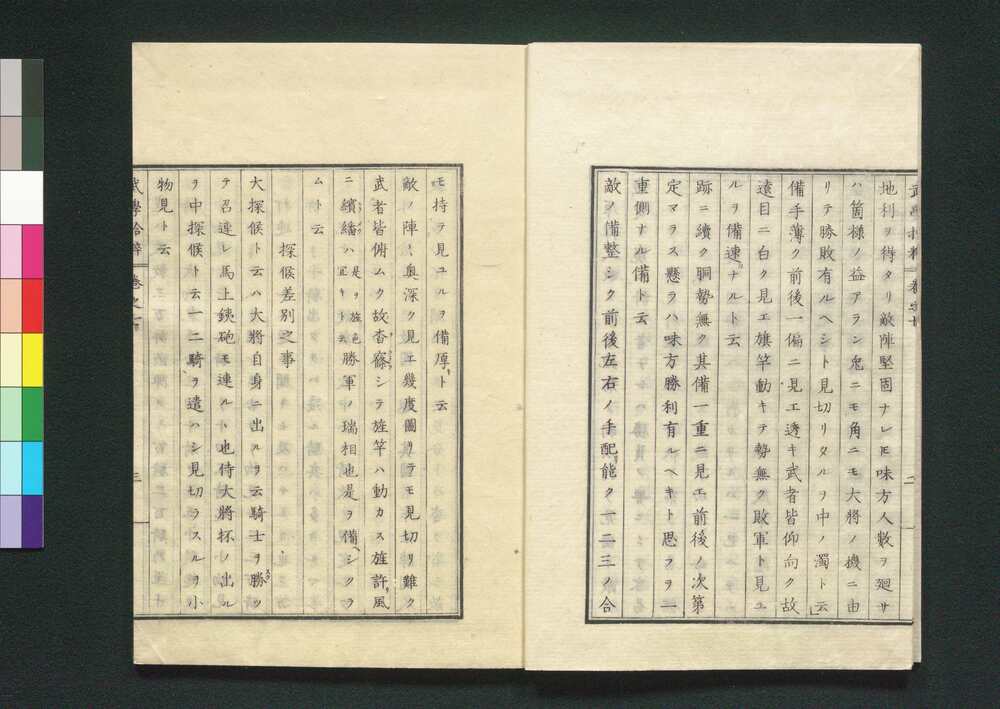 地利ヲ得タリ敵陣堅固ナレ𪜈味方人数ヲ廻サ
ハ箇様ノ益アラン兎ニモ角ニモ大將ノ機ニ由
リテ勝敗有ルヘシト見切リタルヲ中ノ濁ト云
備手薄ク前後一偏ニ見エ透キ武者皆仰向ク故
遠目ニ白ク見エ旗竿動キテ勢無ク敗軍ト見ユ
ルヲ備速ナルト云
跡ニ續ク胴勢無ク其備一重ニ見エ前後ノ次第
定マラス懸ラハ味方勝利有ルヘキト思フヲ一
重側ナル備ト云
敵ノ備整シク前後左右ノ手配能ク一二三ノ合
二
モ持ヲ見ユルヲ備厚ト云
敵ノ陣ハ奥深ク見エ幾度圖リテモ見切リ難ク
武者皆俯ムク故杳窱シテ旌竿ハ動カス旌許風
ニ繽繙ハ是ヲ旌色宜キト云勝軍ノ瑞相也是ヲ備シクラ
ムト云
探候差別之事
大探候ト云ハ大將自身ニ出ルヲ云騎士ヲ勝ツ
テ召連レ馬上鋏砲モ連ルト也侍大將抔ノ出ル
ヲ中探候ト云一二騎ヲ遣ハシ見切ラスルヲ小
物見ト云
武學拾粹 卷之
三